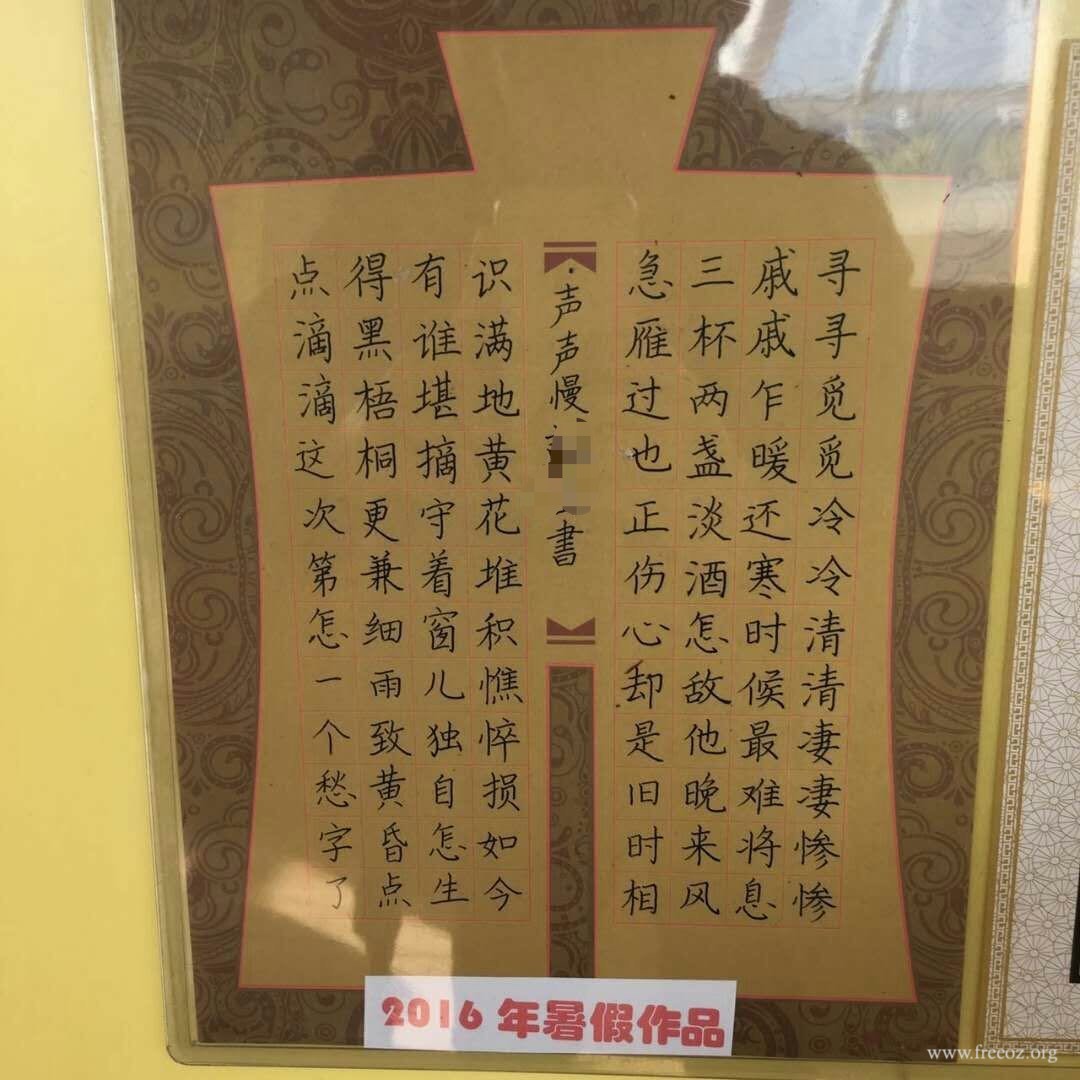 寻寻觅觅冷冷清清凄凄惨惨
戚戚乍暖还寒时候最难将息
三杯两盏淡酒怎敌他晚来风
急雁过也正伤心却是旧时相
·声声慢 書
识满地黄花堆积憔悴损如今
有谁堪摘守着窗儿独自怎生
得黑梧桐更兼细雨致黄昏点
点滴滴这次第怎一个愁字了
2016年暑假作品
www.freeoz.org